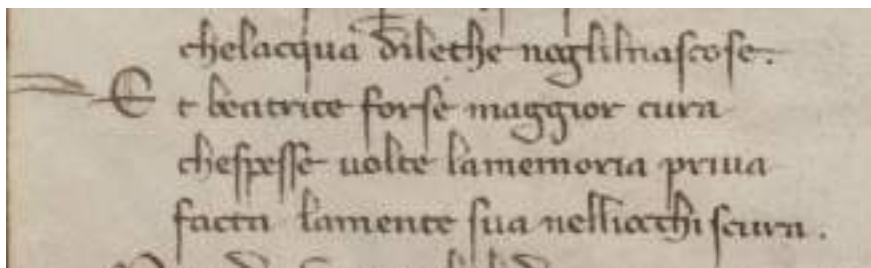 chelacqua dilethe nogliLnascose.
E t beatrice forse maggior cura
chespesse uolte lamemoria priua
facta lamente sua nelliocchi scura.